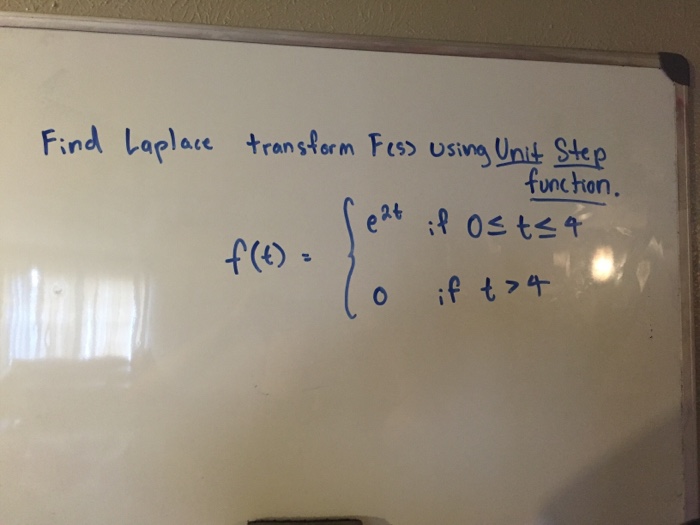 Find Laplace transform F(s) using Unit Step
function.
f(t) = { e^2t if 0 ≤ t ≤ 4
0 if t > 4